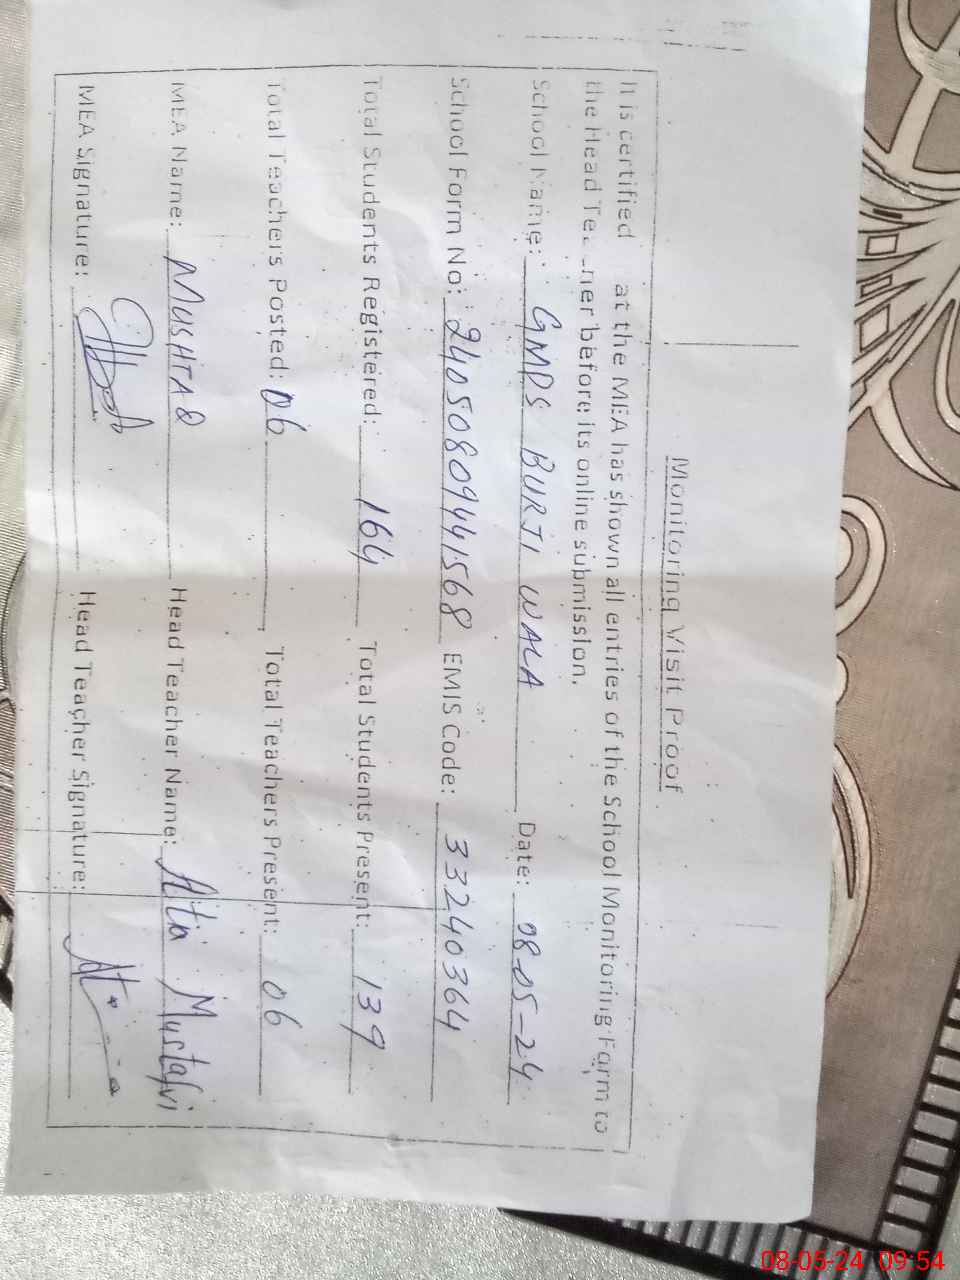 Monitoring Visit Proof
It is certified at the MEA has shown all entries of the School Monitoring Form to
the Head Te ner before its online submission.
School Name: GMPS BURJI WALA Date: 08-05-24
School Form No: 24050809441568 EMIS Code: 33240364
Total Students Registered: 164 Total Students Present: 139
Total Teachers Posted: 06 Total Teachers Present: 06
MEA Name: MUSHTAQ Head Teacher Name: Atia Mustafvi
MEA Signature: Head Teacher Signature:
08-05-24 09:54